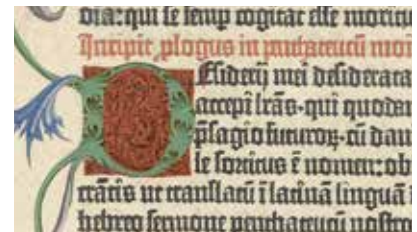 dia: qui se semp cogitat esse moritu
Incipit plogus in pentateucū moy
Desiderij mei desiderata
accepi lr̄as. qui quodā
p̄sagio futuroꝝ. cū dani
le sortitus ē nomen: ob
crātis ut translatū ī latinā linguā
hebreo sermone pentateucū nostro